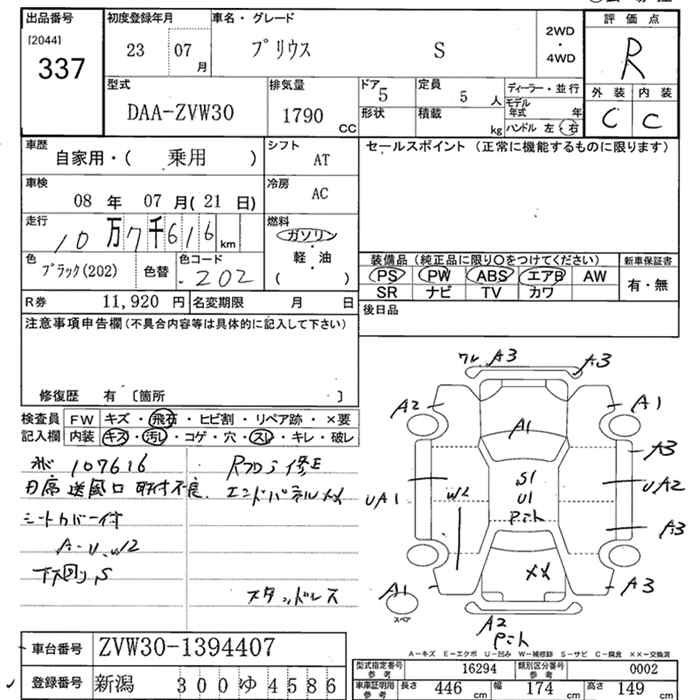 出品番号
[2044]
337
初度登録年月
23 07
月
車名・グレード
プリウス S
2WD
・
4WD
評価点
R
外装 内装
C C
型式
DAA-ZVW30
排気量
1790
CC
ドア
5
形状
定員
5 人
積載
kg
ディーラー・並行
モデル
年式 年
ハンドル 左・右
車歴
自家用・( 乗用 )
シフト
AT
車検
08 年 07 月( 21 日)
冷房
AC
走行
10万7千616 km
燃料
ガソリン
・
軽・油
( )
色
ブラック(202)
色替
色コード
202
R券
11,920 円
名変期限 月 日
セールスポイント (正常に機能するものに限ります)
装備品(純正品に限り○をつけてください)
新車保証書
PS PW ABS エアB AW
SR ナビ TV カワ
有・無
後日品
注意事項申告欄(不具合内容等は具体的に記入して下さい)
修復歴 有 〔箇所 〕
検査員
記入欄
FW キズ・飛石・ヒビ割・リペア跡・×要
内装 キズ・汚レ・コゲ・穴・スレ・キレ・破レ
107616
Rフロア修正
送風口 取付不良
エンドパネルメメ
シートカバー付
A-U.W2
下回りS
スタッドレス
ワレ A3 A3
A2 A1
A1
A3
UA1 W2 S1 UA2
U1
Pニト
A3
XX
A1 A3
スペア
A2
Pニト
A-キズ E-エクボ U-凹み W-補修跡 S-サビ C-腐食 ××-交換済
車台番号
ZVW30-1394407
登録番号
新潟 300ゆ4586
型式指定番号
参考
16294
類別区分番号
参考
0002
車庫証明用
参考
長さ 446 cm
幅 174 cm
高さ 149 cm